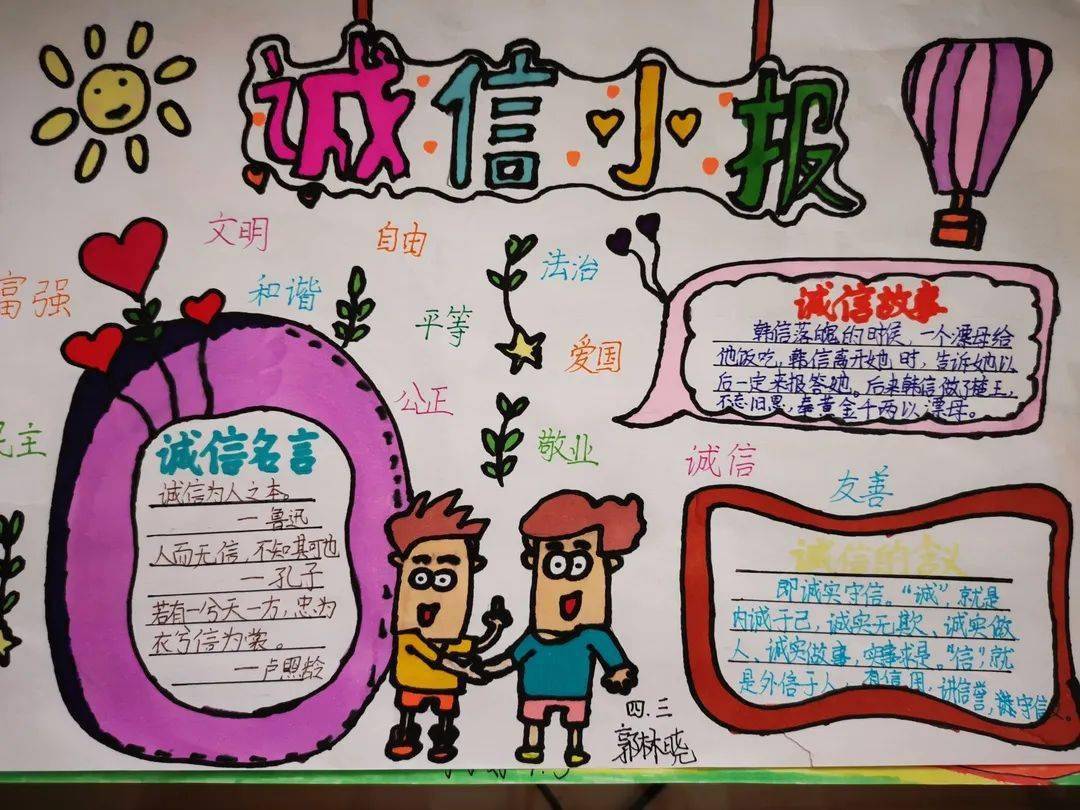 诚信小报
文明
自由
富强
和谐
法治
平等
爱国
公正
民主
敬业
诚信
友善
诚信故事
韩信落魄的时候，一个漂母给
他饭吃，韩信离开她时，告诉她以
后一定来报答她。后来韩信做了楚王，
不忘旧恩，奉黄金千两以漂母。
诚信名言
诚信为人之本。
—鲁迅
人而无信，不知其可也
—孔子
若有一兮天一方，忠为
衣兮信为裳。
—卢照龄
诚信的含义
即诚实守信。“诚”，就是
内诚于己，诚实无欺、诚实做
人、诚实做事，实事求是。“信”就
是外信于人，有信用，讲信誉，守信
四.三
郭林晓